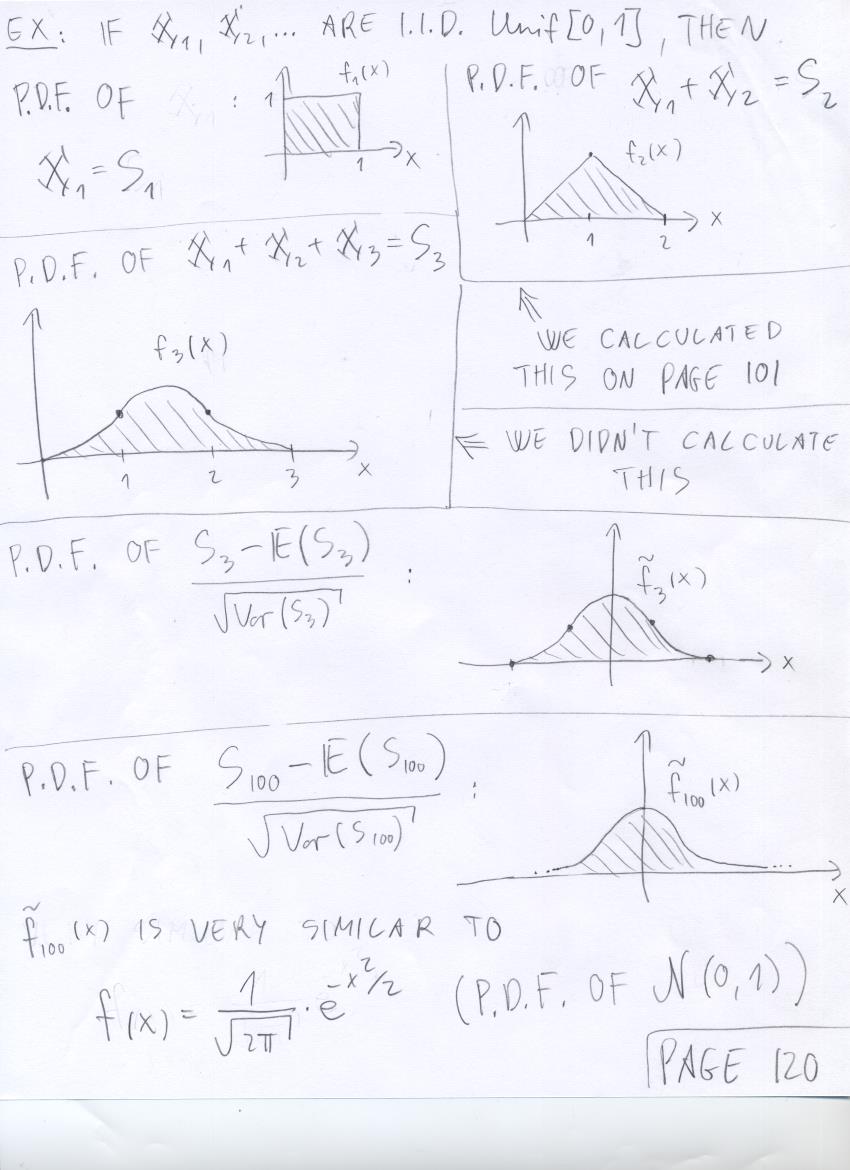 EX: IF X₁, X₂,... ARE I.I.D. Unif[0,1], THEN
P.D.F. OF :
X₁ = S₁
1
f₁(x)
1
x
P.D.F. OF X₁ + X₂ = S₂
f₂(x)
1
2
x
P.D.F. OF X₁ + X₂ + X₃ = S₃
f₃(x)
1
2
3
x
WE CALCULATED
THIS ON PAGE 101
WE DIDN'T CALCULATE
THIS
P.D.F. OF (S₃ − E(S₃)) / √Var(S₃) :
f̃₃(x)
x
P.D.F. OF (S₁₀₀ − E(S₁₀₀)) / √Var(S₁₀₀) :
f̃₁₀₀(x)
x
f̃₁₀₀(x) IS VERY SIMILAR TO
f(x) = 1/√2π · e^(-x²/2) (P.D.F. OF N(0,1))
PAGE 120